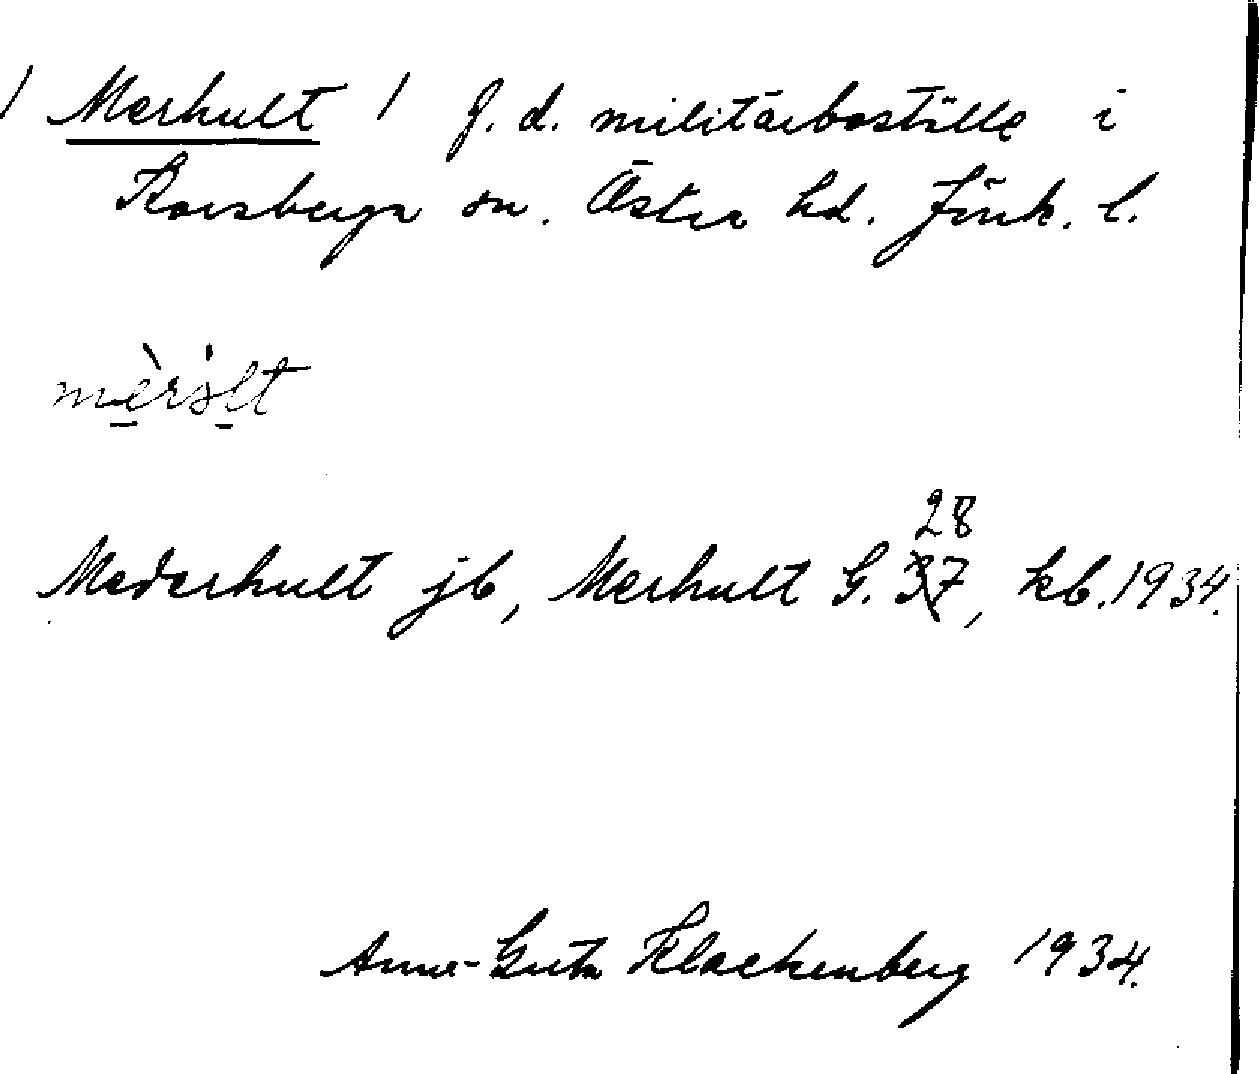 / Merhult / f. d. militärboställe i
Korsberga sn. Östra hd. Jönk. l.
mèrúlt
28
Mederhult jb, Merhult G. 37, kb. 1934.
Anne-Greta Klackenberg 1934.